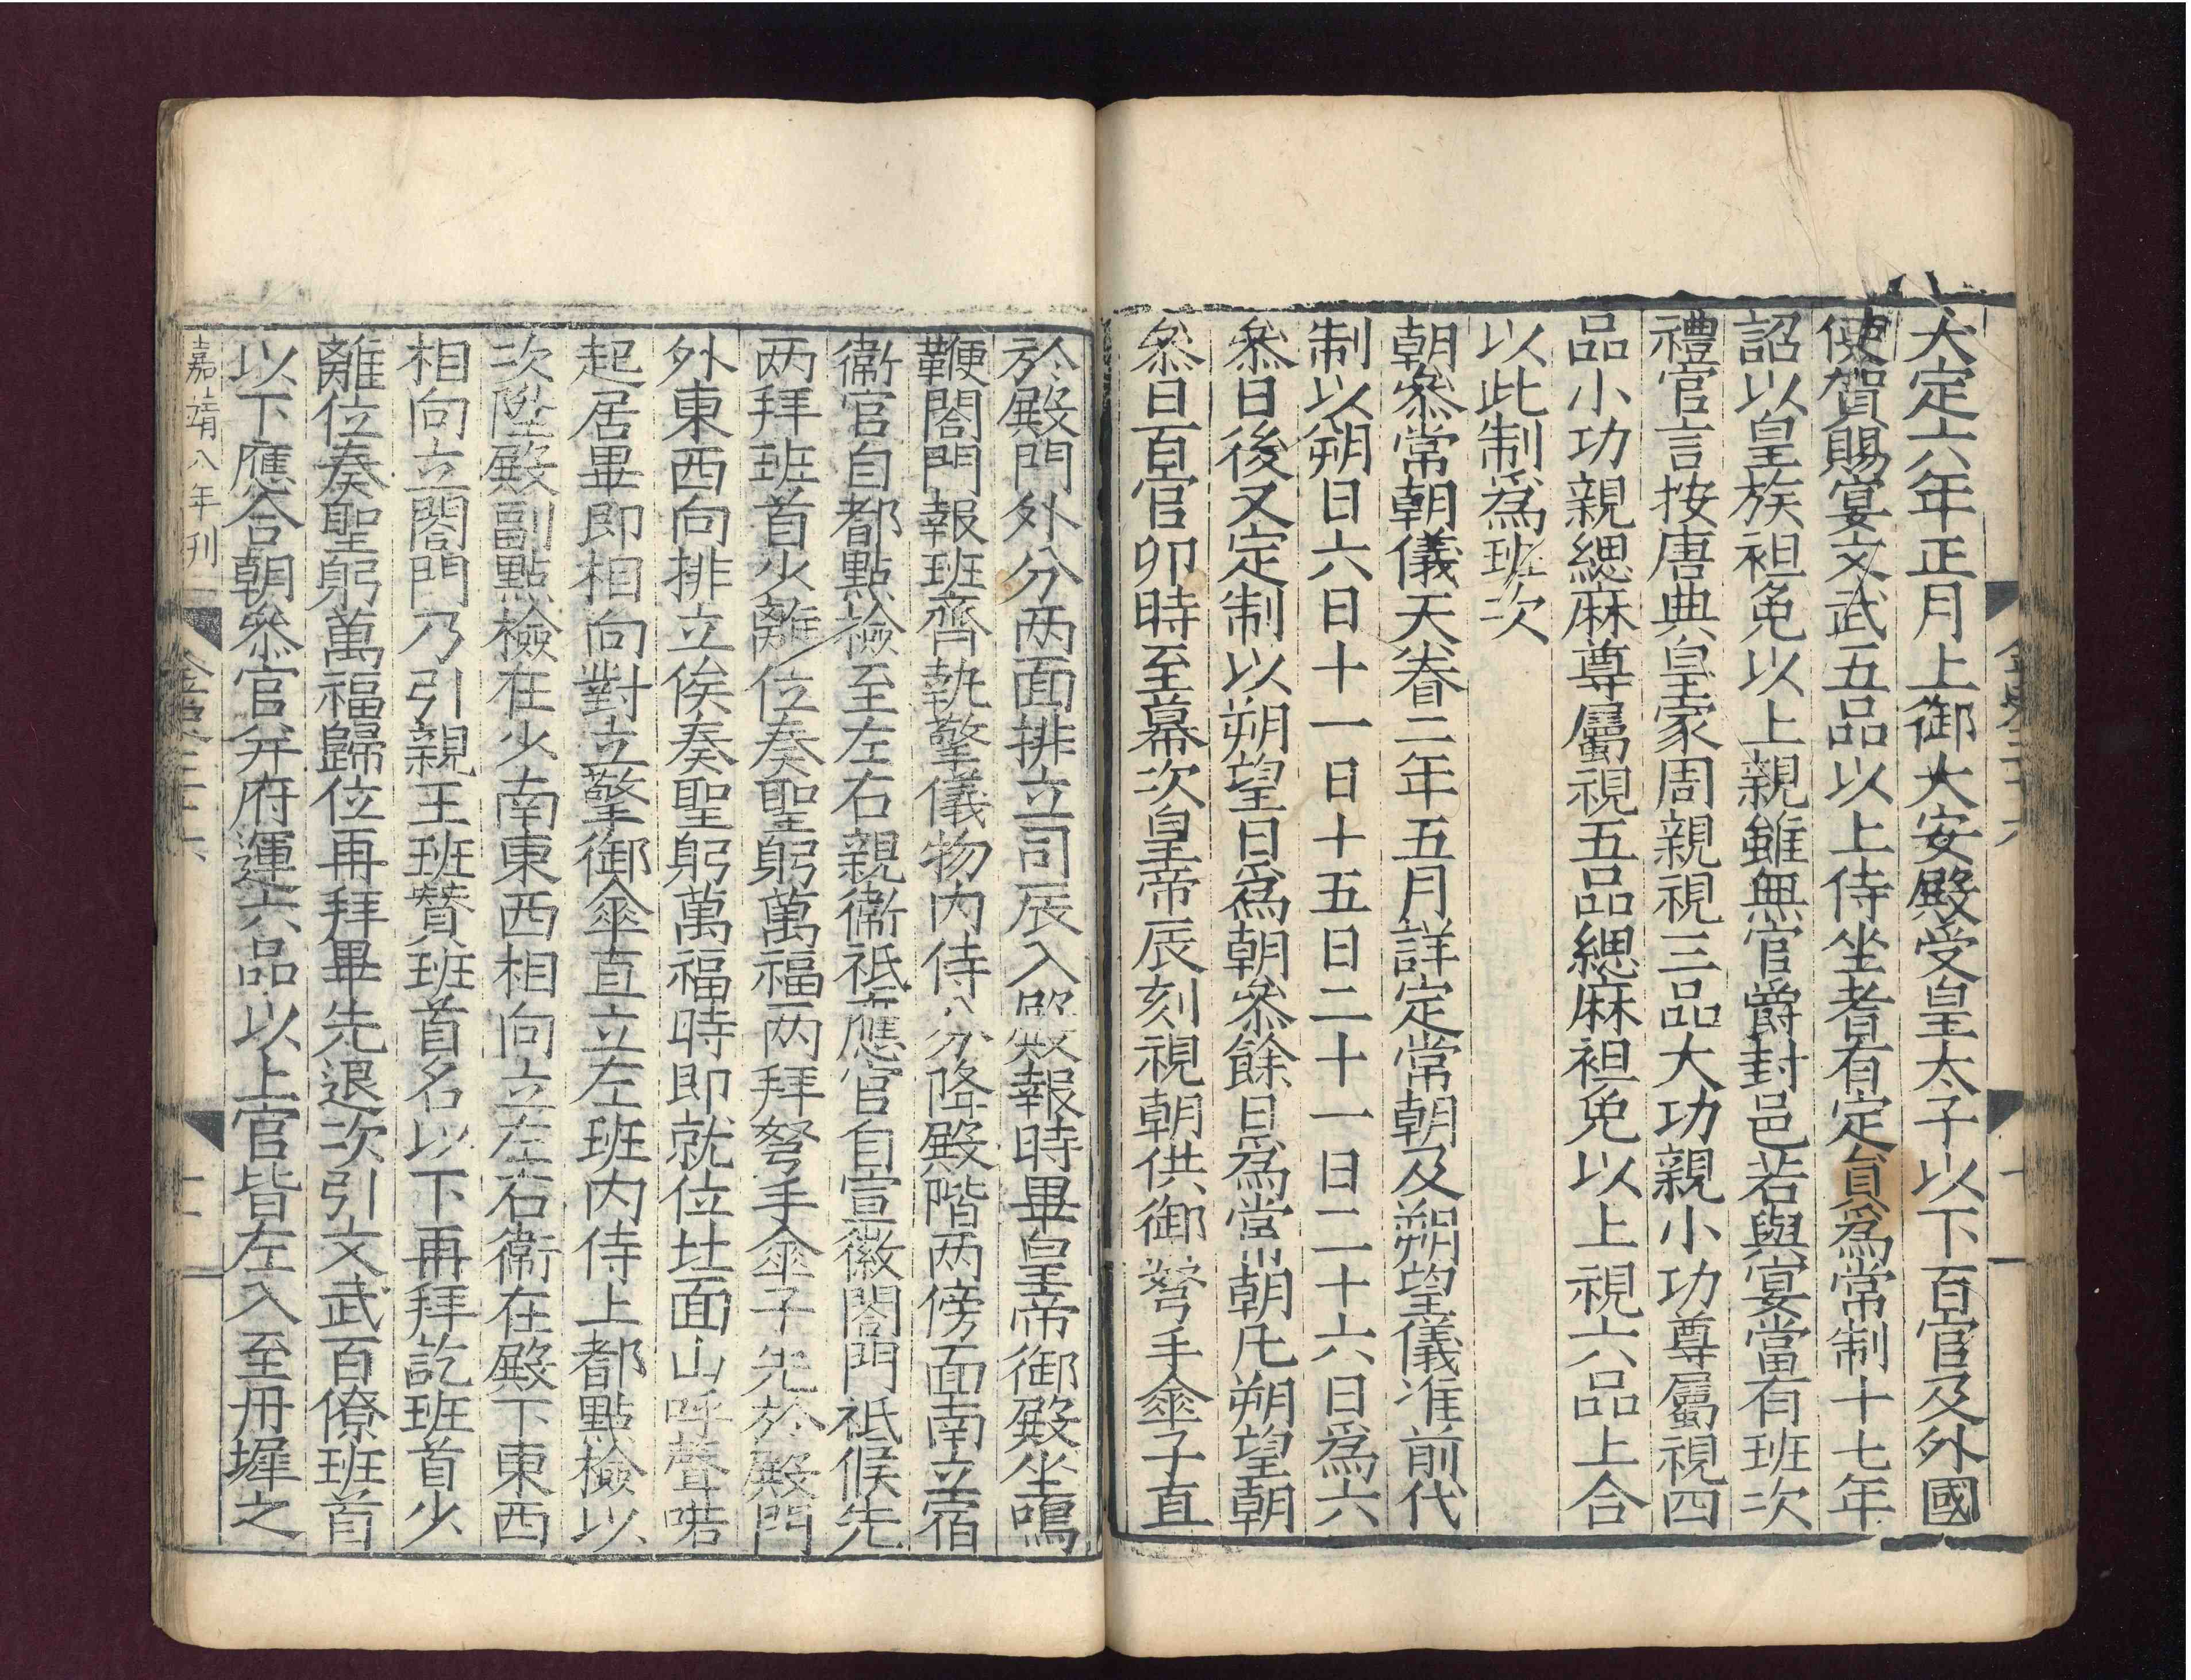 大定六年正月上御大安殿受皇太子以下百官及外國
使賀賜宴文武五品以上侍坐者有定員爲常制十七年
詔以皇族袒免以上親雖無官爵封邑若與宴當有班次
禮官言按唐典皇家周親視三品大功親小功尊屬視四
品小功親緦麻尊屬視五品緦麻袒免以上視六品上合
以此制爲班次
朝叅常朝儀天眷二年五月詳定常朝及朔望儀准前代
制以朔日六日十一日十五日二十一日二十六日爲六
叅日後又定制以朔望日爲朝叅餘日爲常朝凡朔望朝
叅日百官卯時至幕次皇帝辰刻視朝供御弩手傘子直
於殿門外分两面排立司辰入殿報時畢皇帝御殿坐鳴
鞭閤門報班齊執擎儀物内侍分降殿階两傍面南立宿
衞官自都點檢至左右親衞祗應官自宣徽閤門祗候先
两拜班首少離位奏聖躬萬福两拜弩手傘子先於殿門
外東西向排立俟奏聖躬萬福時即就位北面山呼聲喏
起居畢即相向對立擎御傘直立左班内侍上都點檢以
次陞殿副點檢在少南東西相向立左右衞在殿下東西
相向立閤門乃引親王班贊班首名以下再拜訖班首少
離位奏聖躬萬福歸位再拜畢先退次引文武百僚班首
以下應合朝叅官并府運六品以上官皆左入至丹墀之
嘉靖八年刊